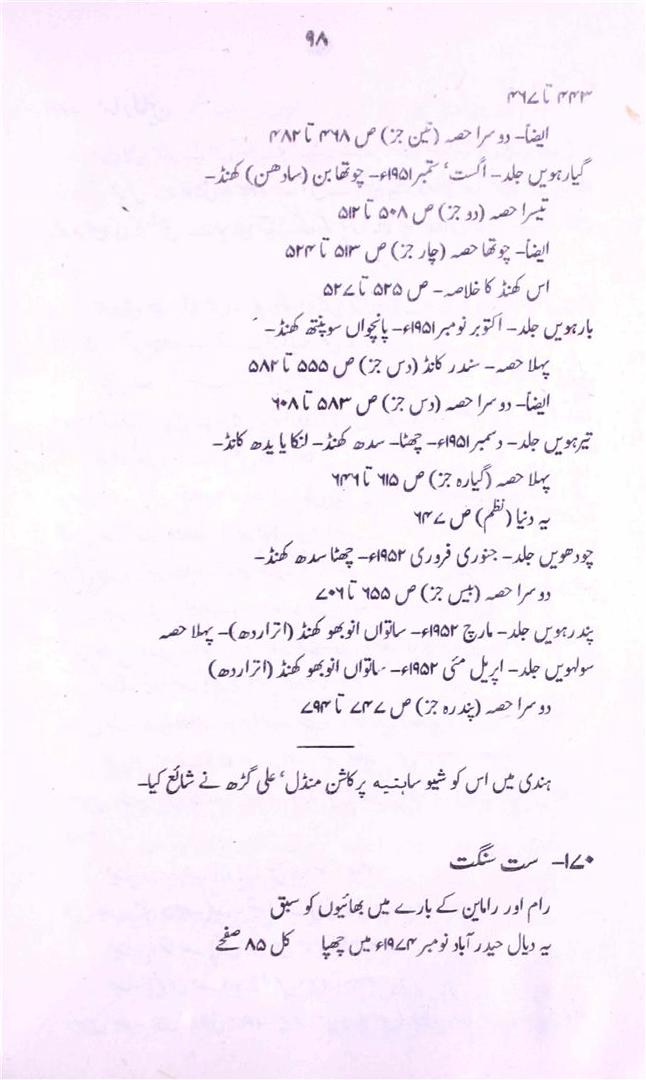 ۹۸
۴۴۳ تا ۴۶۷
ایضاً- دوسرا حصہ (تین جز) ص ۴۶۸ تا ۴۸۲
گیارہویں جلد- اگست، ستمبر ۱۹۵۱ء- چوتھا بن (سادھن) کھنڈ-
تیسرا حصہ (دو جز) ص ۵۰۸ تا ۵۱۲
ایضاً- چوتھا حصہ (چار جز) ص ۵۱۳ تا ۵۲۴
اس کھنڈ کا خلاصہ- ص ۵۲۵ تا ۵۲۷
بارہویں جلد- اکتوبر نومبر ۱۹۵۱ء- پانچواں سوپنتھ کھنڈ-
پہلا حصہ- سندر کانڈ (دس جز) ص ۵۵۵ تا ۵۸۲
ایضاً- دوسرا حصہ (دس جز) ص ۵۸۳ تا ۶۰۸
تیرہویں جلد- دسمبر ۱۹۵۱ء- چھٹا- سدھ کھنڈ- لنکا یا یدھ کانڈ-
پہلا حصہ (گیارہ جز) ص ۶۱۵ تا ۶۴۶
یہ دنیا (نظم) ص ۶۴۷
چودھویں جلد- جنوری فروری ۱۹۵۲ء- چھٹا سدھ کھنڈ-
دوسرا حصہ (بیس جز) ص ۶۵۵ تا ۷۰۶
پندرہویں جلد- مارچ ۱۹۵۲ء- ساتواں انوبھو کھنڈ (اتراردھ)- پہلا حصہ
سولہویں جلد- اپریل مئی ۱۹۵۲ء- ساتواں انوبھو کھنڈ (اتراردھ)
دوسرا حصہ (پندرہ جز) ص ۷۴۷ تا ۷۹۴
ہندی میں اس کو شیو ساہتیہ پرکاشن منڈل، علی گڑھ نے شائع کیا-
۱۷۰- ست سنگت
رام اور راماین کے بارے میں بھائیوں کو سبق
یہ دیال حیدر آباد نومبر ۱۹۷۴ء میں چھپا کل ۸۵ صفحے